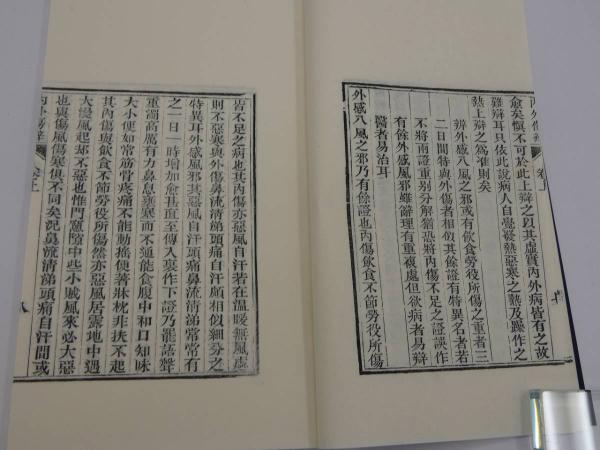 愈矣慎不可於此上辯之以其虛實內外病皆有之故
難辯耳只依此說病人自覺發熱惡寒之熱及躁作之
熱上辯之為準則矣
辯外感八風之邪或有飲食勞役所傷之重者三
二日間特與外傷者相似其餘證有特異名者若
不將兩證重別分解猶恐將內傷不足之證誤作
有餘外感風邪雖辭理有重複處但欲病者易辯
醫者易治耳
外感八風之邪乃有餘證也內傷飲食不節勞役所傷
皆不足之病也其內傷亦惡風自汗若在溫暖無風處
則不惡寒與外傷鼻流清涕頭痛自汗頗相似細分之
特異耳外感風邪其惡風自汗頭痛鼻流清涕常常有
之一日一時增加愈甚直至傳入裏作下證乃罷語聲
重濁高厲有力鼻息壅塞而不通能食腹中和口知味
大小便如常筋骨疼痛不能動搖便著牀枕非扶不起
其內傷與飲食不節勞役所傷然亦惡風居露地中遇
大漫風起卻不惡也惟門窗隙中些小賊風來必大惡
也與傷風傷寒俱不同矣況鼻流清涕頭痛自汗間或
內外傷辨
卷上